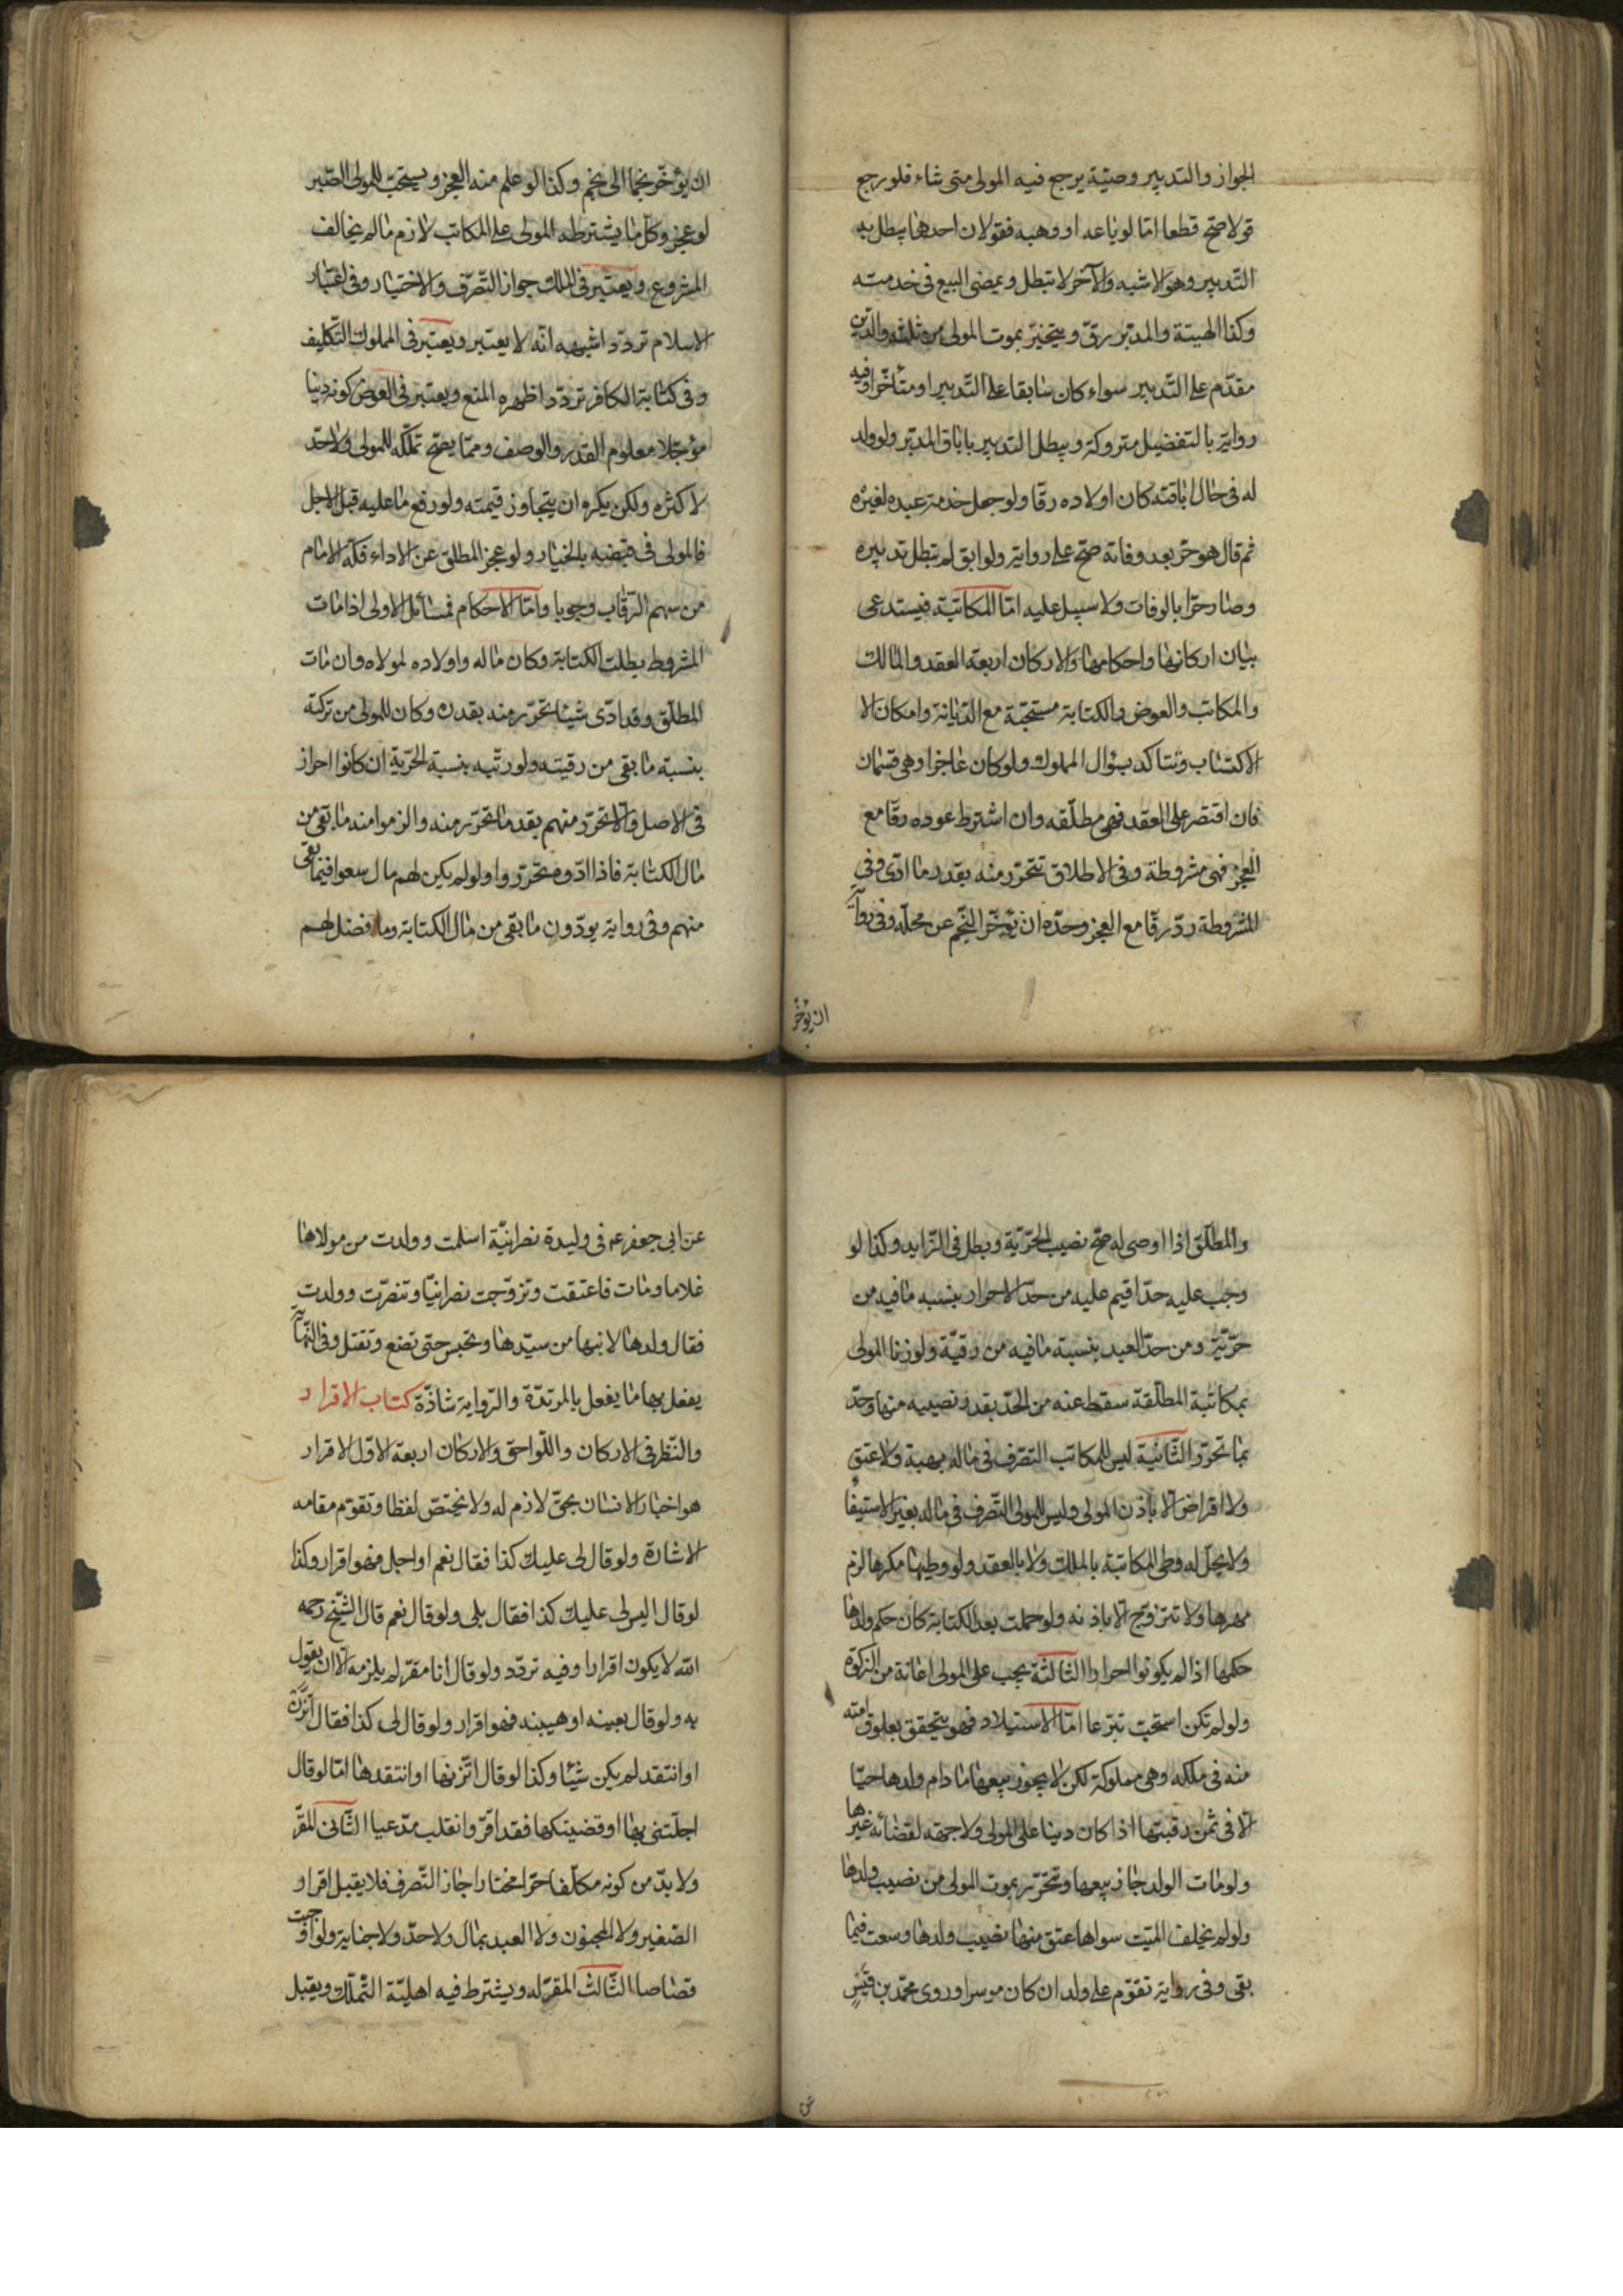 الجواز والتدبير وصيّة يرجع فيه المولى متى شاء فلو رجع
قولا صحّ قطعا امّا لو باعه او وهبه فقولان احدهما يبطل به
التدبير وهو الاشبه والآخر لا تبطل ويمضى البيع فى خدمته
وكذا الهيبة والمدبّر رقّ ويتحيّز بموت المولى من ثلثه والدّين
مقدّم على التّدبير سواء كان سابقا على التّدبير او متأخّرا وفيه
رواية بالتفضيل متروكة ويبطل التدبير باباق المدبّر ولو ولد
له فى حال اباقته كان اولاده رقّا ولو جعل خدمة عبده لغيره
ثم قال هو حرّ بعد وفاته صحّ على رواية ولو ابق لم تبطل تدبيره
وصار حرّا بالوفات ولا سبيل عليه امّا المكاتبة فيستدعى
بيان اركانها واحكامها والاركان اربعة العقد والمالك
والمكاتب والعوض والكتابة مستحبّة مع الدّيانة وامكان الا
الاكتساب وتتأكد بسؤال المملوك ولو كان عاجزا وهى قسمان
فان اقتصر على العقد فهى مطلّقه وان اشترط عوده رقّا مع
العجز فهى مشروطة وفى الاطلاق تتحرّر منه بقدر ما ادّى وفى
المشروطة ردّ رقّا مع العجز وحدّه ان يؤخّر النّجم عن محلّه وفى رواية
ان يؤخّر
ان يؤخّر نجما الى نجم وكذا لو علم منه العجز ويستحبّ للمولى الصّبر
لو عجز وكلّ ما يشترطه المولى على المكاتب لازم ما لم يخالف
المشروع ويعتبر فى المالك جواز التّصرّف والاختيار وفى اعتبار
الاسلام تردّد اشبهه انّه لا يعتبر ويعتبر فى المملوك التّكليف
وفى كتابة الكافر تردّد اظهره المنع ويعتبر فى العوض كونه دينا
مؤجّلا معلوم القدر والوصف وممّا يصحّ تملّكه للمولى ولا حدّ
لاكثره ولكن يكره ان يتجاوز قيمته ولو دفع ما عليه قبل الاجل
فالمولى فى قبضه بالخيار ولو عجز المطلق عن الاداء فكّه الامام
من سهم الرّقاب وجوبا وامّا الاحكام فمسائل الاولى اذا مات
المشروط بطلت الكتابة وكان ماله واولاده لمولاه وان مات
المطلّق وقد ادّى شيئا تحرّر منه بقدره وكان للمولى من تركته
بنسبة ما بقى من رقيته ولورثته بنسبة الحرّية ان كانوا احراز
فى الاصل والّا تحرّر منهم بقدر ما تحرّر منه والزموا منه ما بقى من
مال الكتابة فاذا ادّوه تحرّروا ولو لم يكن لهم مال سعوا فيما بقى
منهم وفى رواية يودّون ما بقى من مال الكتابة وما فضل لهم
والمطلّق اذا اوصى له صحّ نصيب الحرّيّة وبطل فى الزّايد وكذا لو
وجب عليه حدّ اقيم عليه من حدّ الاحرار بنسبه ما فيه من
حرّيّة ومن حدّ العبد بنسبة ما فيه من رقيّة ولو زنا المولى
بمكاتبة المطلّقة سقط عنه من الحدّ بقدر نصيبه منها وحدّ
بما تحرّر الثّانية ليس للمكاتب التصّرف فى ماله بهبة ولا عتق
ولا اقراض الّا باذن المولى وليس للمولى التّصرف فى ماله بغير الاستيفا
ولا يحلّ له وطى المكاتبة بالملك ولا بالعقد ولو وطيها مكرها لزم
مهرها ولا تتزوّج الّا باذنه ولو حملت بعد الكتابة كان حكم ولدها
حكمها اذا لم يكونوا احرارا الثالثة يجب على المولى اعانة من الزكوة
ولو لم تكن استحبّت تبرّعا امّا الاستيلاد فهو يتحقق بعلوق امته
منه فى ملكه وهى مملوكة لكن لا يجوز بيعها ما دام ولدها حيّا
الّا فى ثمن رقبتها اذا كان دينا على المولى ولا جهة لقضائه غيرها
ولو مات الولد جاز بيعها وتحرّر بموت المولى من نصيب ولدها
ولو لم يخلف الميّت سواها عتق منها نصيب ولدها وسعت فيما
بقى وفى رواية تقوّم على ولد ان كان موسرا وروى محمّد بن قيس
عن
عن ابى جعفر عه فى وليدة نصرانيّة اسلمت وولدت من مولاها
غلاما ومات فاعتقت وتزوّجت نصرانيّا وتنصّرت وولدت
فقال ولدها لابنها من سيّدها وتحبس حتى تضع وتقتل وفى النّهاية
يفعل بها ما يفعل بالمرتدّة والرّواية شاذّة كتاب الاقرار
والنّظر فى الاركان واللّواحق والاركان اربعة الاوّل الاقرار
هو اخبار الانسان بحقّ لازم له ولا يختصّ لفظا وتقوّم مقامه
الاشارة ولو قال لى عليك كذا فقال نعم او اجل فهو اقرار وكذا
لو قال اليس لى عليك كذا فقال بلى ولو قال نعم قال الشّيخ رحمه
اللّه لا يكون اقرارا وفيه تردّد ولو قال انا مقرّ لم يلزمه الّا ان يقول
به ولو قال بعينه او هيبنه فهو اقرار ولو قال لى كذا فقال اتّزن
او انتقد لم يكن شيئا وكذا لو قال اتّزنها او انتقدها امّا لو قال
اجلّتنى بها او قضيتكها فقد اقرّ وانقلب مدّعيا الثّانى المقرّ
ولا بدّ من كونه مكلّفا حرّا مختارا جاز التّصرف فلا يقبل اقرار
الصّغير ولا المجنون ولا العبد بمال ولا حدّ ولا جناية ولو اوجبت
قصاصا الثّالث المقرّ له ويشترط فيه اهليّة التّملّك ويقبل